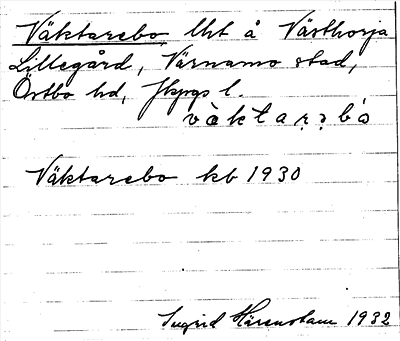 Väktarebo lht å Västhorja
Lillegård, Värnamo stad,
Östbo hd, Jkpgs l.
väktarəbo
Väktarebo kb 1930
Ingrid Härenstam 1932